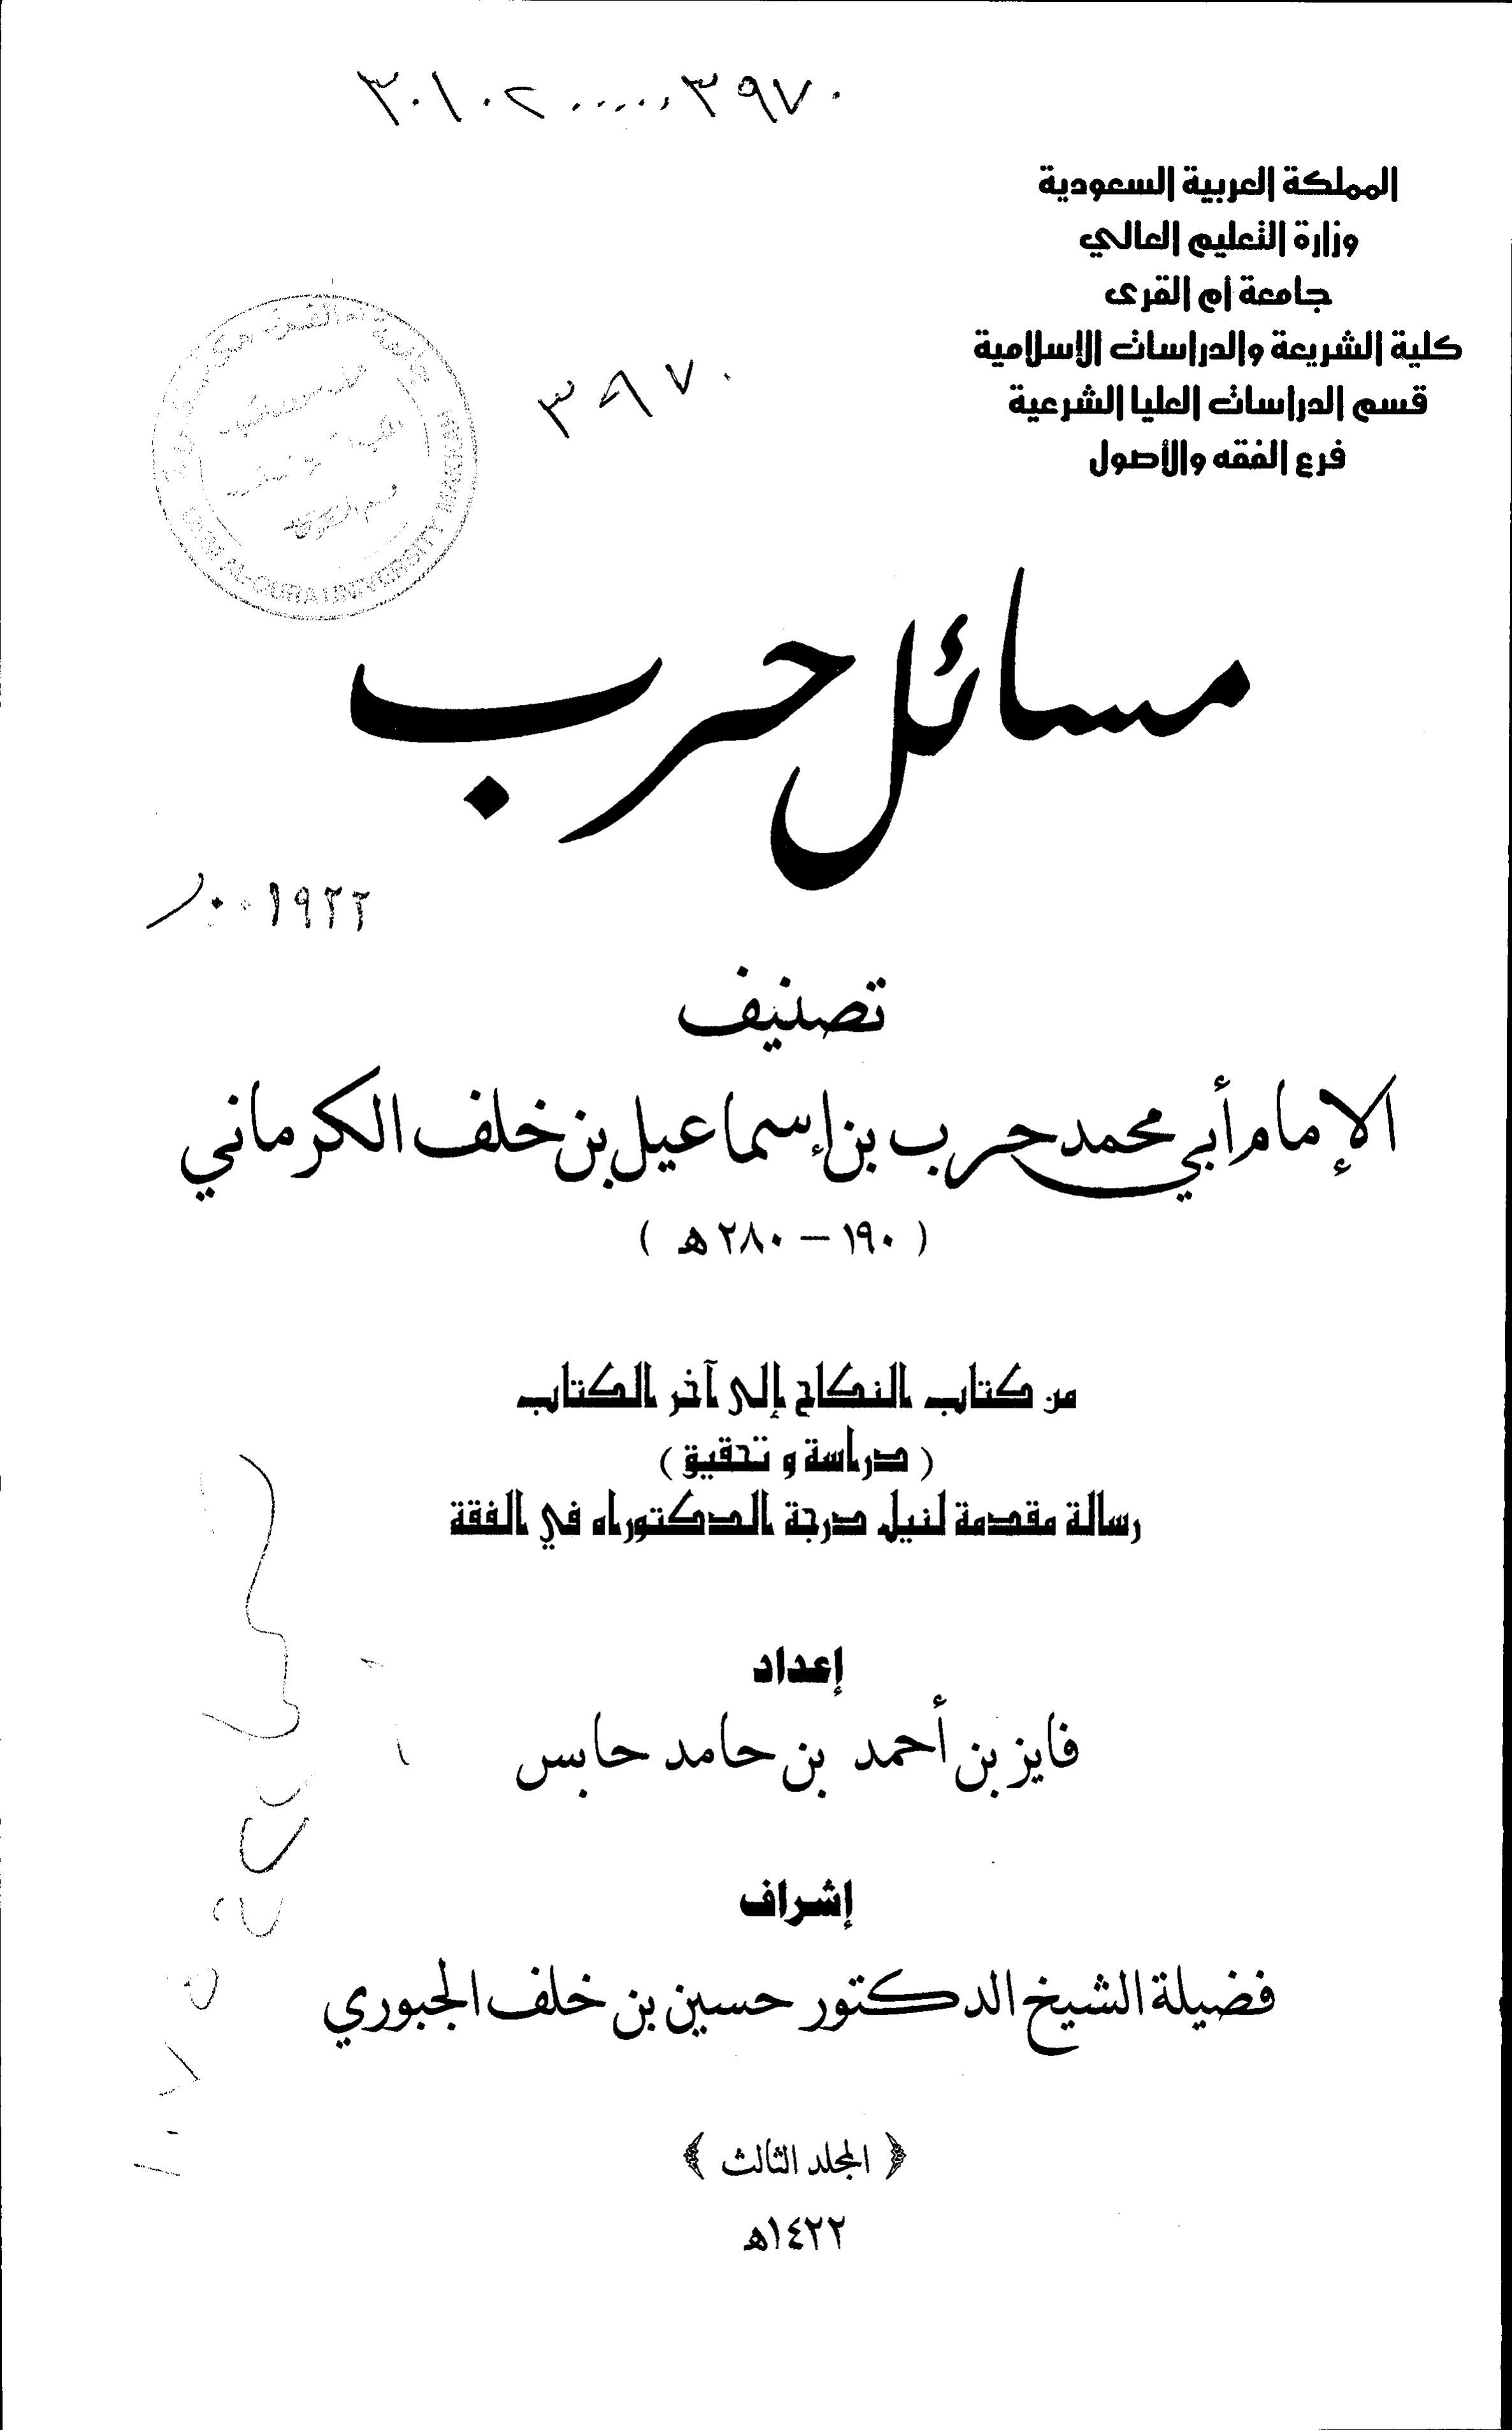 ٣٠١٠٢٠٠٠٠٠٣٩٧٠
المملكة العربية السعودية
وزارة التعليم العالي
جامعة أم القرى
كلية الشريعة والدراسات الإسلامية
قسم الدراسات العليا الشرعية
فرع الفقه والأصول
٣٩٧٠
UMM AL-QURA UNIVERSITY MAKKAH
مسائل حرب
٠٠١٩٢٢
تصنيف
الإمام أبي محمد حرب بن إسماعيل بن خلف الكرماني
( ١٩٠ – ٢٨٠ هـ )
من كتاب النكاح إلى آخر الكتاب
( دراسة و تحقيق )
رسالة مقدمة لنيل درجة الدكتوراه في الفقة
إعداد
فايز بن أحمد بن حامد حابس
إشراف
فضيلة الشيخ الدكتور حسين بن خلف الجبوري
﴿ المجلد الثالث ﴾
١٤٢٢هـ